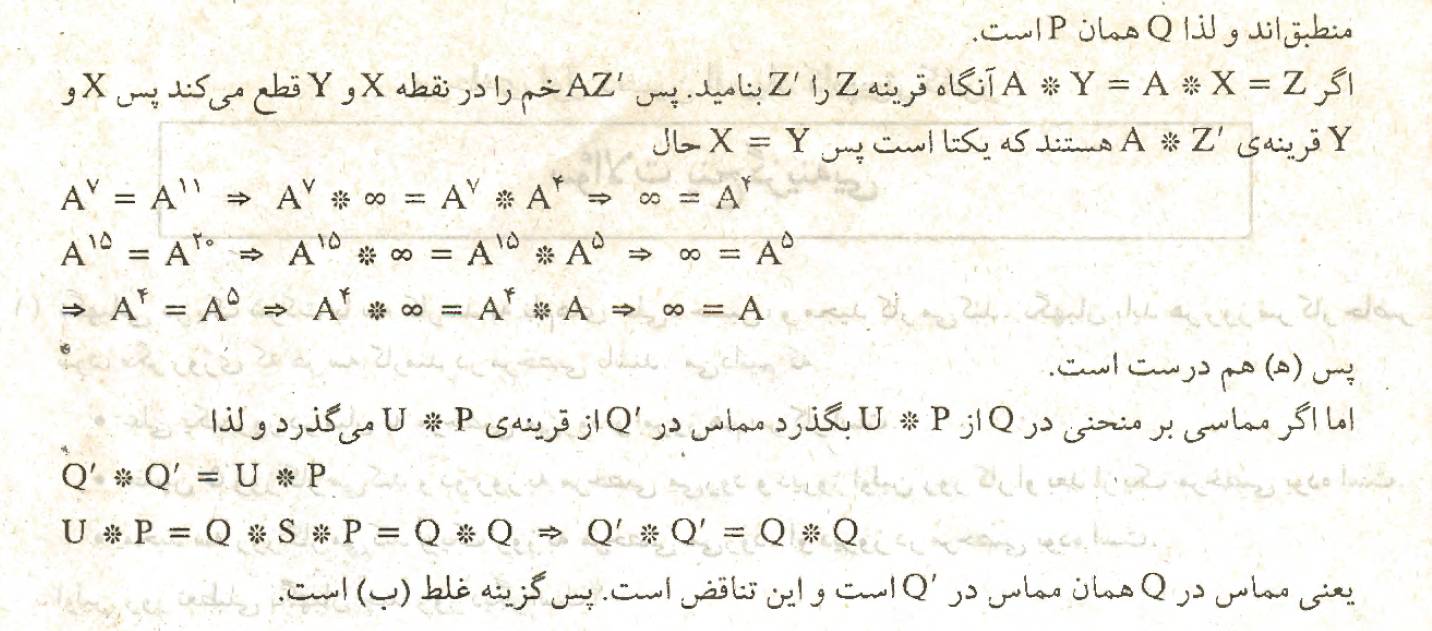 منطبق‌اند و لذا Q همان P است.
اگر A ⁕ Y = A ⁕ X = Z آنگاه قرینه Z را Z′ بنامید. پس AZ′ خم را در نقطه X و Y قطع می‌کند پس X و
Y قرینه‌ی A ⁕ Z′ هستند که یکتا است پس X = Y حال
A^۷ = A^۱۱ ⇒ A^۷ ⁕ ∞ = A^۷ ⁕ A^۴ ⇒ ∞ = A^۴
A^۱۵ = A^۲۰ ⇒ A^۱۵ ⁕ ∞ = A^۱۵ ⁕ A^۵ ⇒ ∞ = A^۵
⇒ A^۴ = A^۵ ⇒ A^۴ ⁕ ∞ = A^۴ ⁕ A ⇒ ∞ = A
پس (ه) هم درست است.
اما اگر مماسی بر منحنی در Q از U ⁕ P بگذرد مماس در Q′ از قرینه‌ی U ⁕ P می‌گذرد و لذا
Q′ ⁕ Q′ = U ⁕ P
U ⁕ P = Q ⁕ S ⁕ P = Q ⁕ Q ⇒ Q′ ⁕ Q′ = Q ⁕ Q
یعنی مماس در Q همان مماس در Q′ است و این تناقض است. پس گزینه غلط (ب) است.